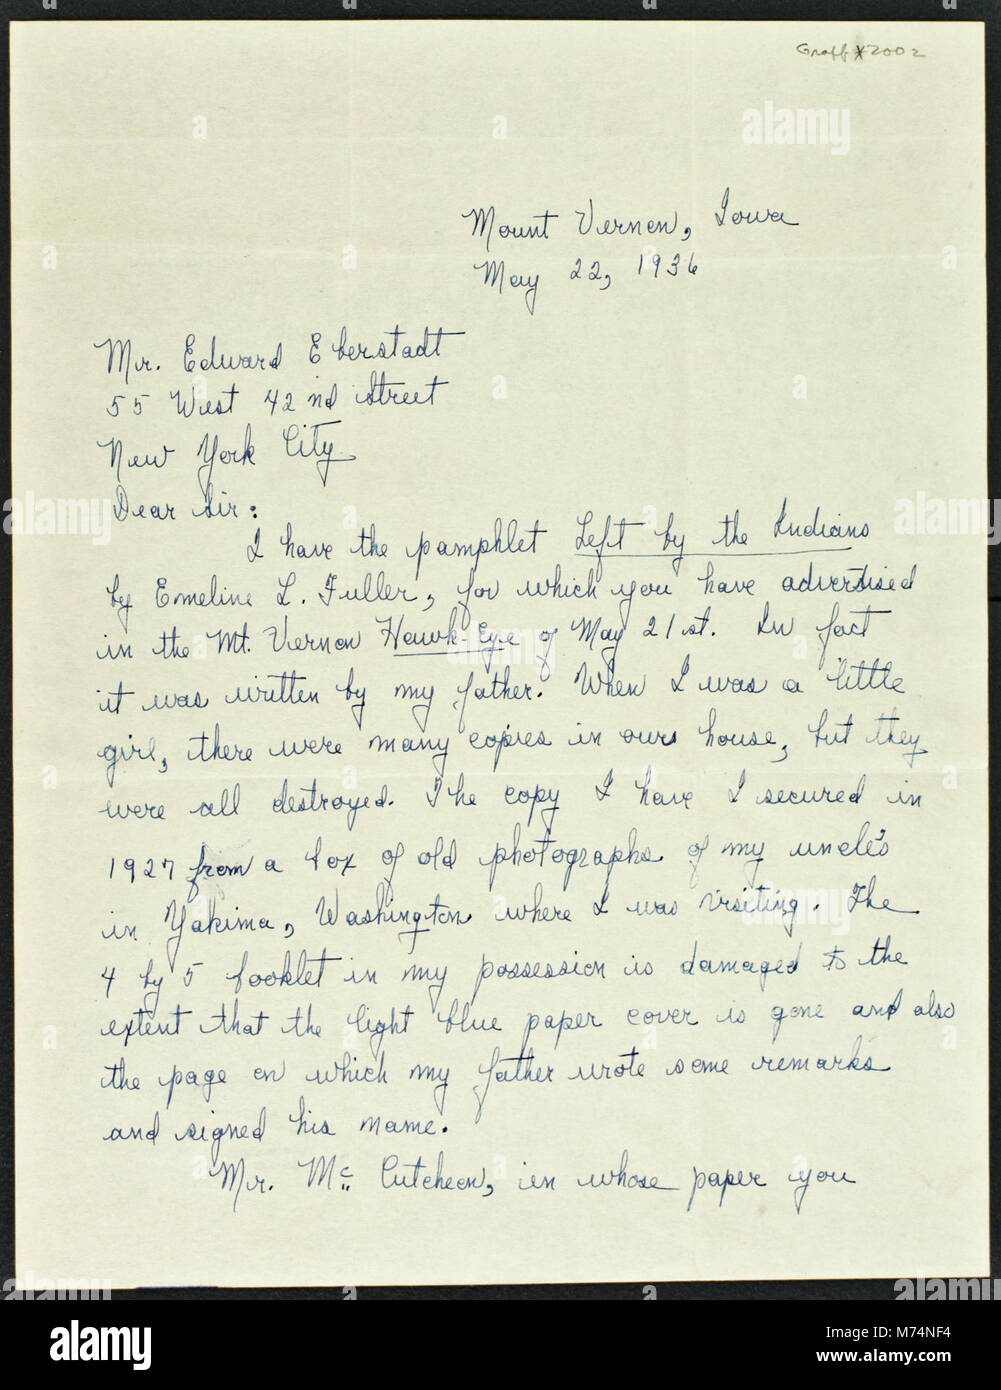 Graff 2002
Mount Vernon, Iowa
May 22, 1936
Mr. Edward Eberstadt
55 West 42nd Street
New York City
Dear Sir:
I have the pamphlet Left by the Indians
by Emeline L. Fuller, for which you have advertised
in the Mt. Vernon Hawk-Eye of May 21st. In fact
it was written by my father. When I was a little
girl, there were many copies in our house, but they
were all destroyed. The copy I have I secured in
1927 from a box of old photographs of my uncle's
in Yakima, Washington where I was visiting. The
4 by 5 booklet in my possession is damaged to the
extent that the light blue paper cover is gone and also
the page on which my father wrote some remarks
and signed his name.
Mr. Mc Cutcheon, in whose paper you
alamy
M74NF4
www.alamy.com